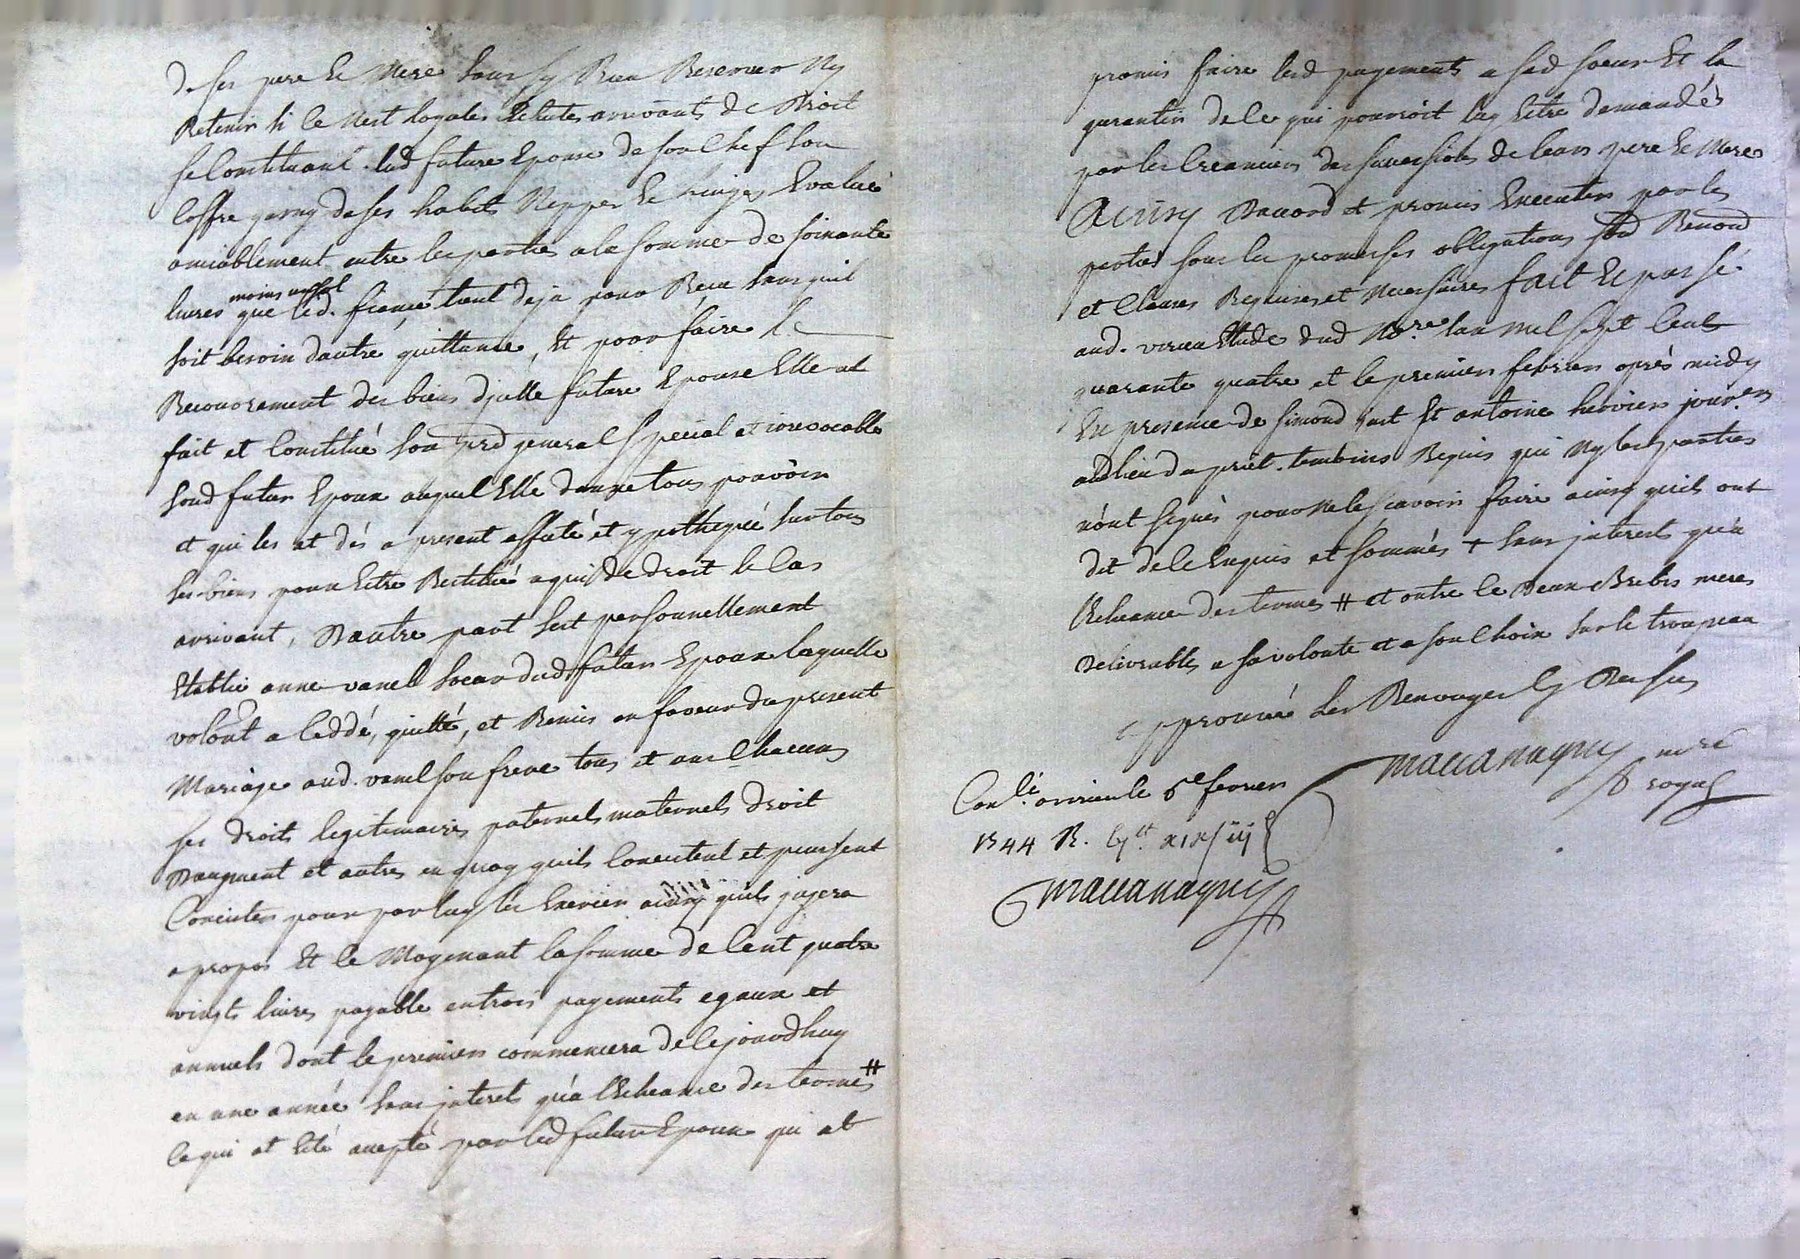 de ses pere et mere sans sy Rien Reserver Ny
Retenir si ce nest loyales Echutes arrivants de Droit
se Constituant lad future Epouse de son Chef son
Coffre garny de ses habits Nippes et linges Evalué
amiablement entre les parties a la somme de soixante
livres moins que led. fiancé tient deja pour Receu sans quil
soit besoin dautre quittance, Et pour faire le
Recouvrement des biens djcelle future Epouse Elle at
fait et Constitué son prd general special et irrevocable
sond futur Epoux auquel Elle donne tous pouvoir
et qui les at dés a present affecté et ypothequé sur tous
ses biens pour Estre Restitué a qui de droit le Cas
arrivant, Dautre part sest personnellement
Etablie anne vanel soeur dud. futur Epoux laquelle
volont a Ceddé, quitté, et Remis en faveur du present
Mariage aud. vanel son frere tous et un Chacuns
ses droits legitimaires paternels maternels droit
Daugment et autres en quoy quils Concistent et puissent
Concister pour par luy les Exercer ainsy quil jugera
a propos Et ce Moyenant la somme de Cent quatre
vingts livres payable en trois payements egaux et
annuels dont le premier commencera de Cejourdhuy
en une année sans jnterets qu'a l'Echeance des termes #
Ce qui at Eté accepté par led futur Epoux qui at
promis faire lesd payements a sad soeur Et la
garantir de Ce qui pourroit luy Estre demandés
par les Creanciers des successions de leurs pere et Mere
Ainsy Daccord et promis Executer par les
parties sous les promesses obligations sād Renond
et Clauses Requises et Necessaires fait et passé
aud. virieu Etude dud Nore. lan mil sept Cent
quarante quatre et le premier fevrier après midy
En presence de simond Et antoine hervier jour.ers
aud lieu du pnēt. temoins Requis qui Ny lesd parties
nont signés pour ne le scavoir faire ainsy quils ont
dit de Ce Enquis et sommés + sans jnterests qu'a
l'Echeance des termes # et outre Ce Deux Brebis meres
Delivrables a sa volonté et a son Choix sur le troupeau
approuvé les Renvoyes Cy Dessus
maccanagney nore
royal
Con.lé a virieu le 6e fevrier
1744 R.
Maccanagney